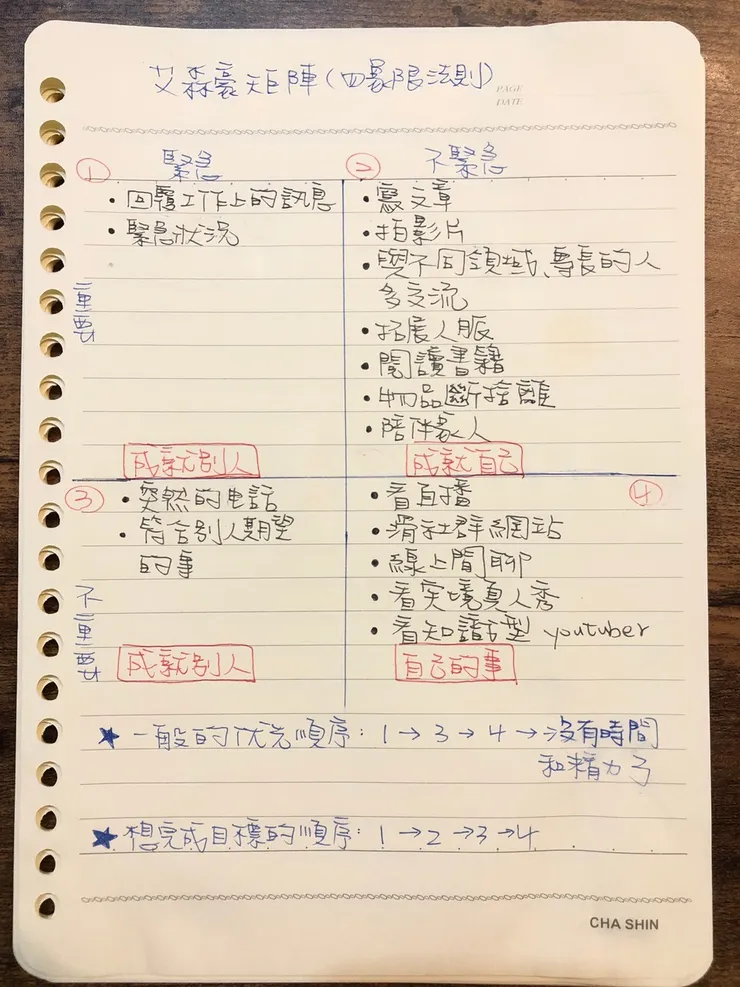 艾森豪矩陣(四象限法則)
PAGE
DATE
① 緊急
② 不緊急
重要
• 回覆工作上的訊息
• 緊急狀況
成就別人
• 寫文章
• 拍影片
• 與不同領域、專長的人
多交流
• 拓展人脈
• 閱讀書籍
• 物品斷捨離
• 陪伴家人
成就自己
不重要
③
• 突然的电話
• 符合別人期望
的事
成就別人
④
• 看直播
• 滑社群網站
• 線上閒聊
• 看实境真人秀
• 看知識型 youtuber
自己的事
★ 一般的优先順序: 1 → 3 → 4 → 沒有時間
和精力了
★ 想完成目標的順序: 1 → 2 → 3 → 4
CHA SHIN